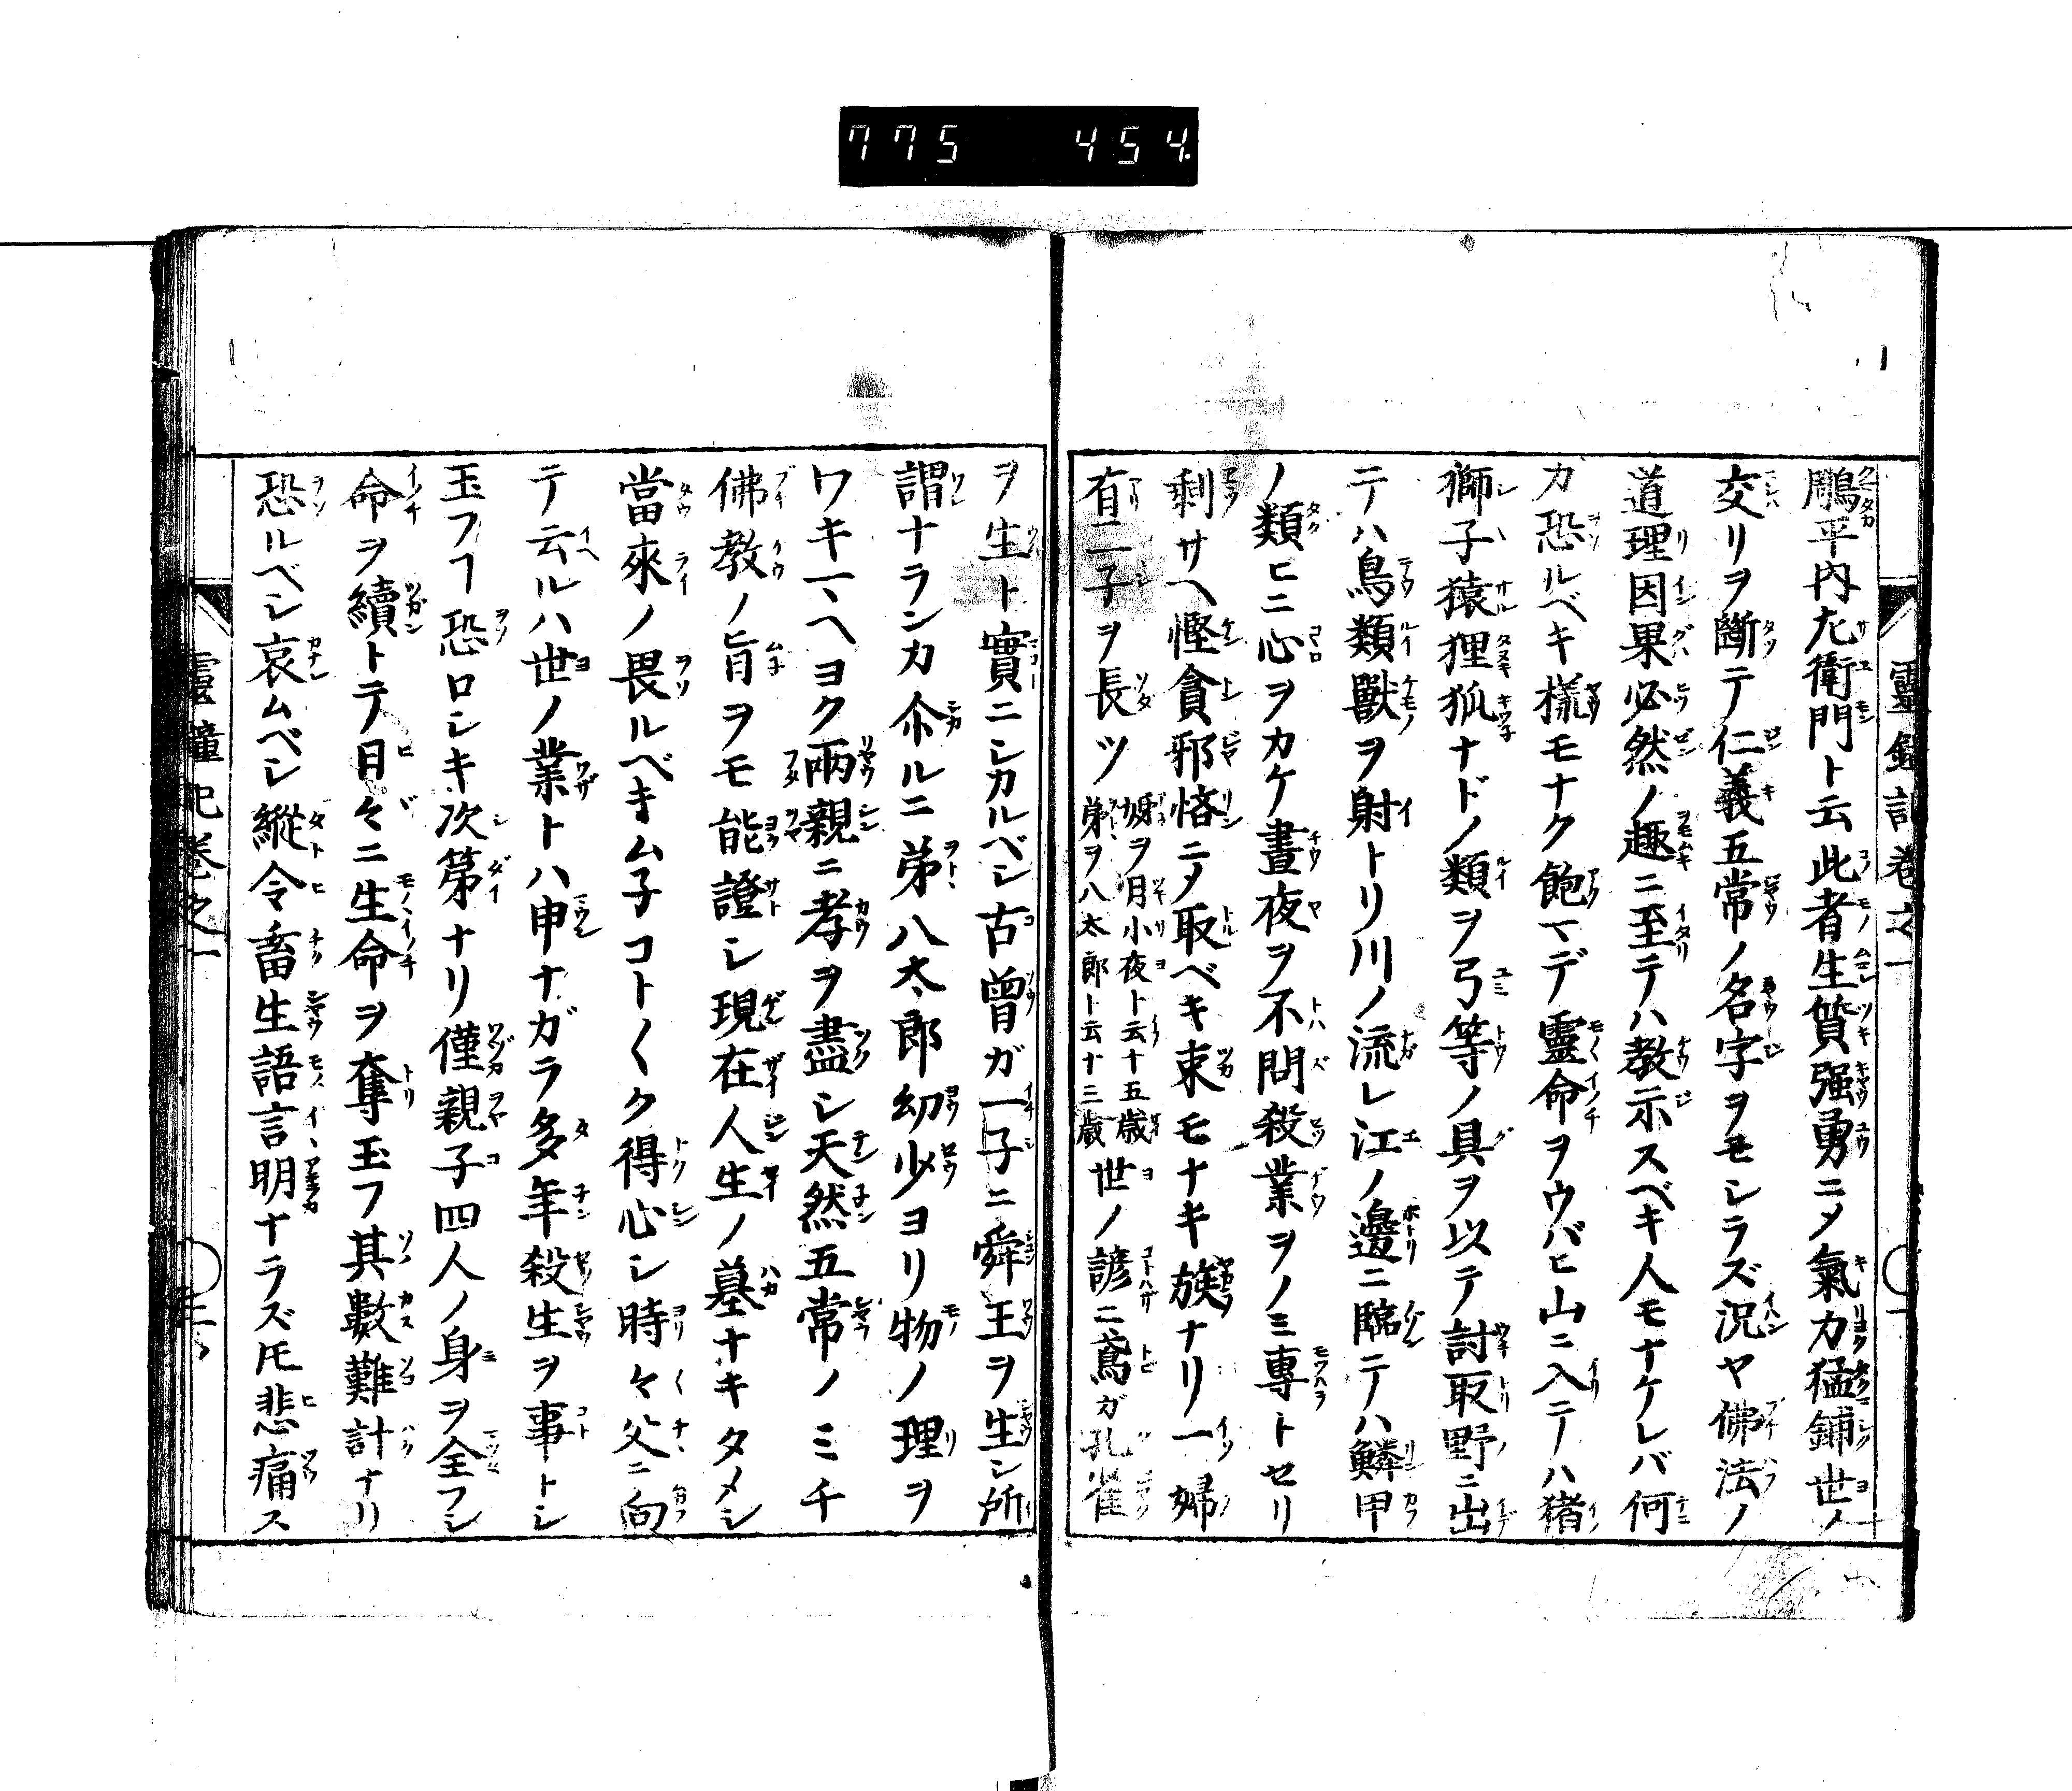 775 454.
靈鐘記巻之一
鵰平内左衛門ト云此者生質强勇ニメ氣力猛鋪世ノ
交リヲ斷テ仁義五常ノ名字ヲモシラズ況ヤ佛法ノ
道理因果必然ノ趣ニ至テハ教示スベキ人モナケレバ何
カ恐ルベキ樣モナク飽マデ靈命ヲウバヒ山ニ入テハ猪
獅子猿狸狐ナドノ類ヲ弓等ノ具ヲ以テ討取野ニ出
テハ鳥類獸ヲ射トリ川ノ流レ江ノ邊ニ臨テハ鱗甲
ノ類ヒニ心ヲカケ晝夜ヲ不問殺業ヲノミ專トセリ
剩サヘ慳貪邪悋ニメ取ベキ束モナキ族ナリ一婦
有二子ヲ長ツ
姊ヲ月小夜ト云十五歳
弟ヲ八太郎ト云十三歳
世ノ諺ニ鳶ガ孔雀
ヲ生ト實ニシカルベシ古曾ガ一子ニ舜王ヲ生シ所
謂ナランカ尒ルニ弟八太郎幼少ヨリ物ノ理ヲ
ワキマヘヨク兩親ニ孝ヲ盡シ天然五常ノミチ
佛教ノ旨ヲモ能證シ現在人生ノ墓ナキタメシ
當來ノ畏ルベキム子コト〱ク得心シ時々父ニ向
テ云ルハ世ノ業トハ申ナガラ多年殺生ヲ事トシ
玉フヿ恐ロシキ次第ナリ僅親子四人ノ身ヲ全フシ
命ヲ續トテ日々ニ生命ヲ奪玉フ其數難計ナリ
恐ルベシ哀ムベシ縱令畜生語言明ナラズ𪜈悲痛ス
靈鐘記巻之一